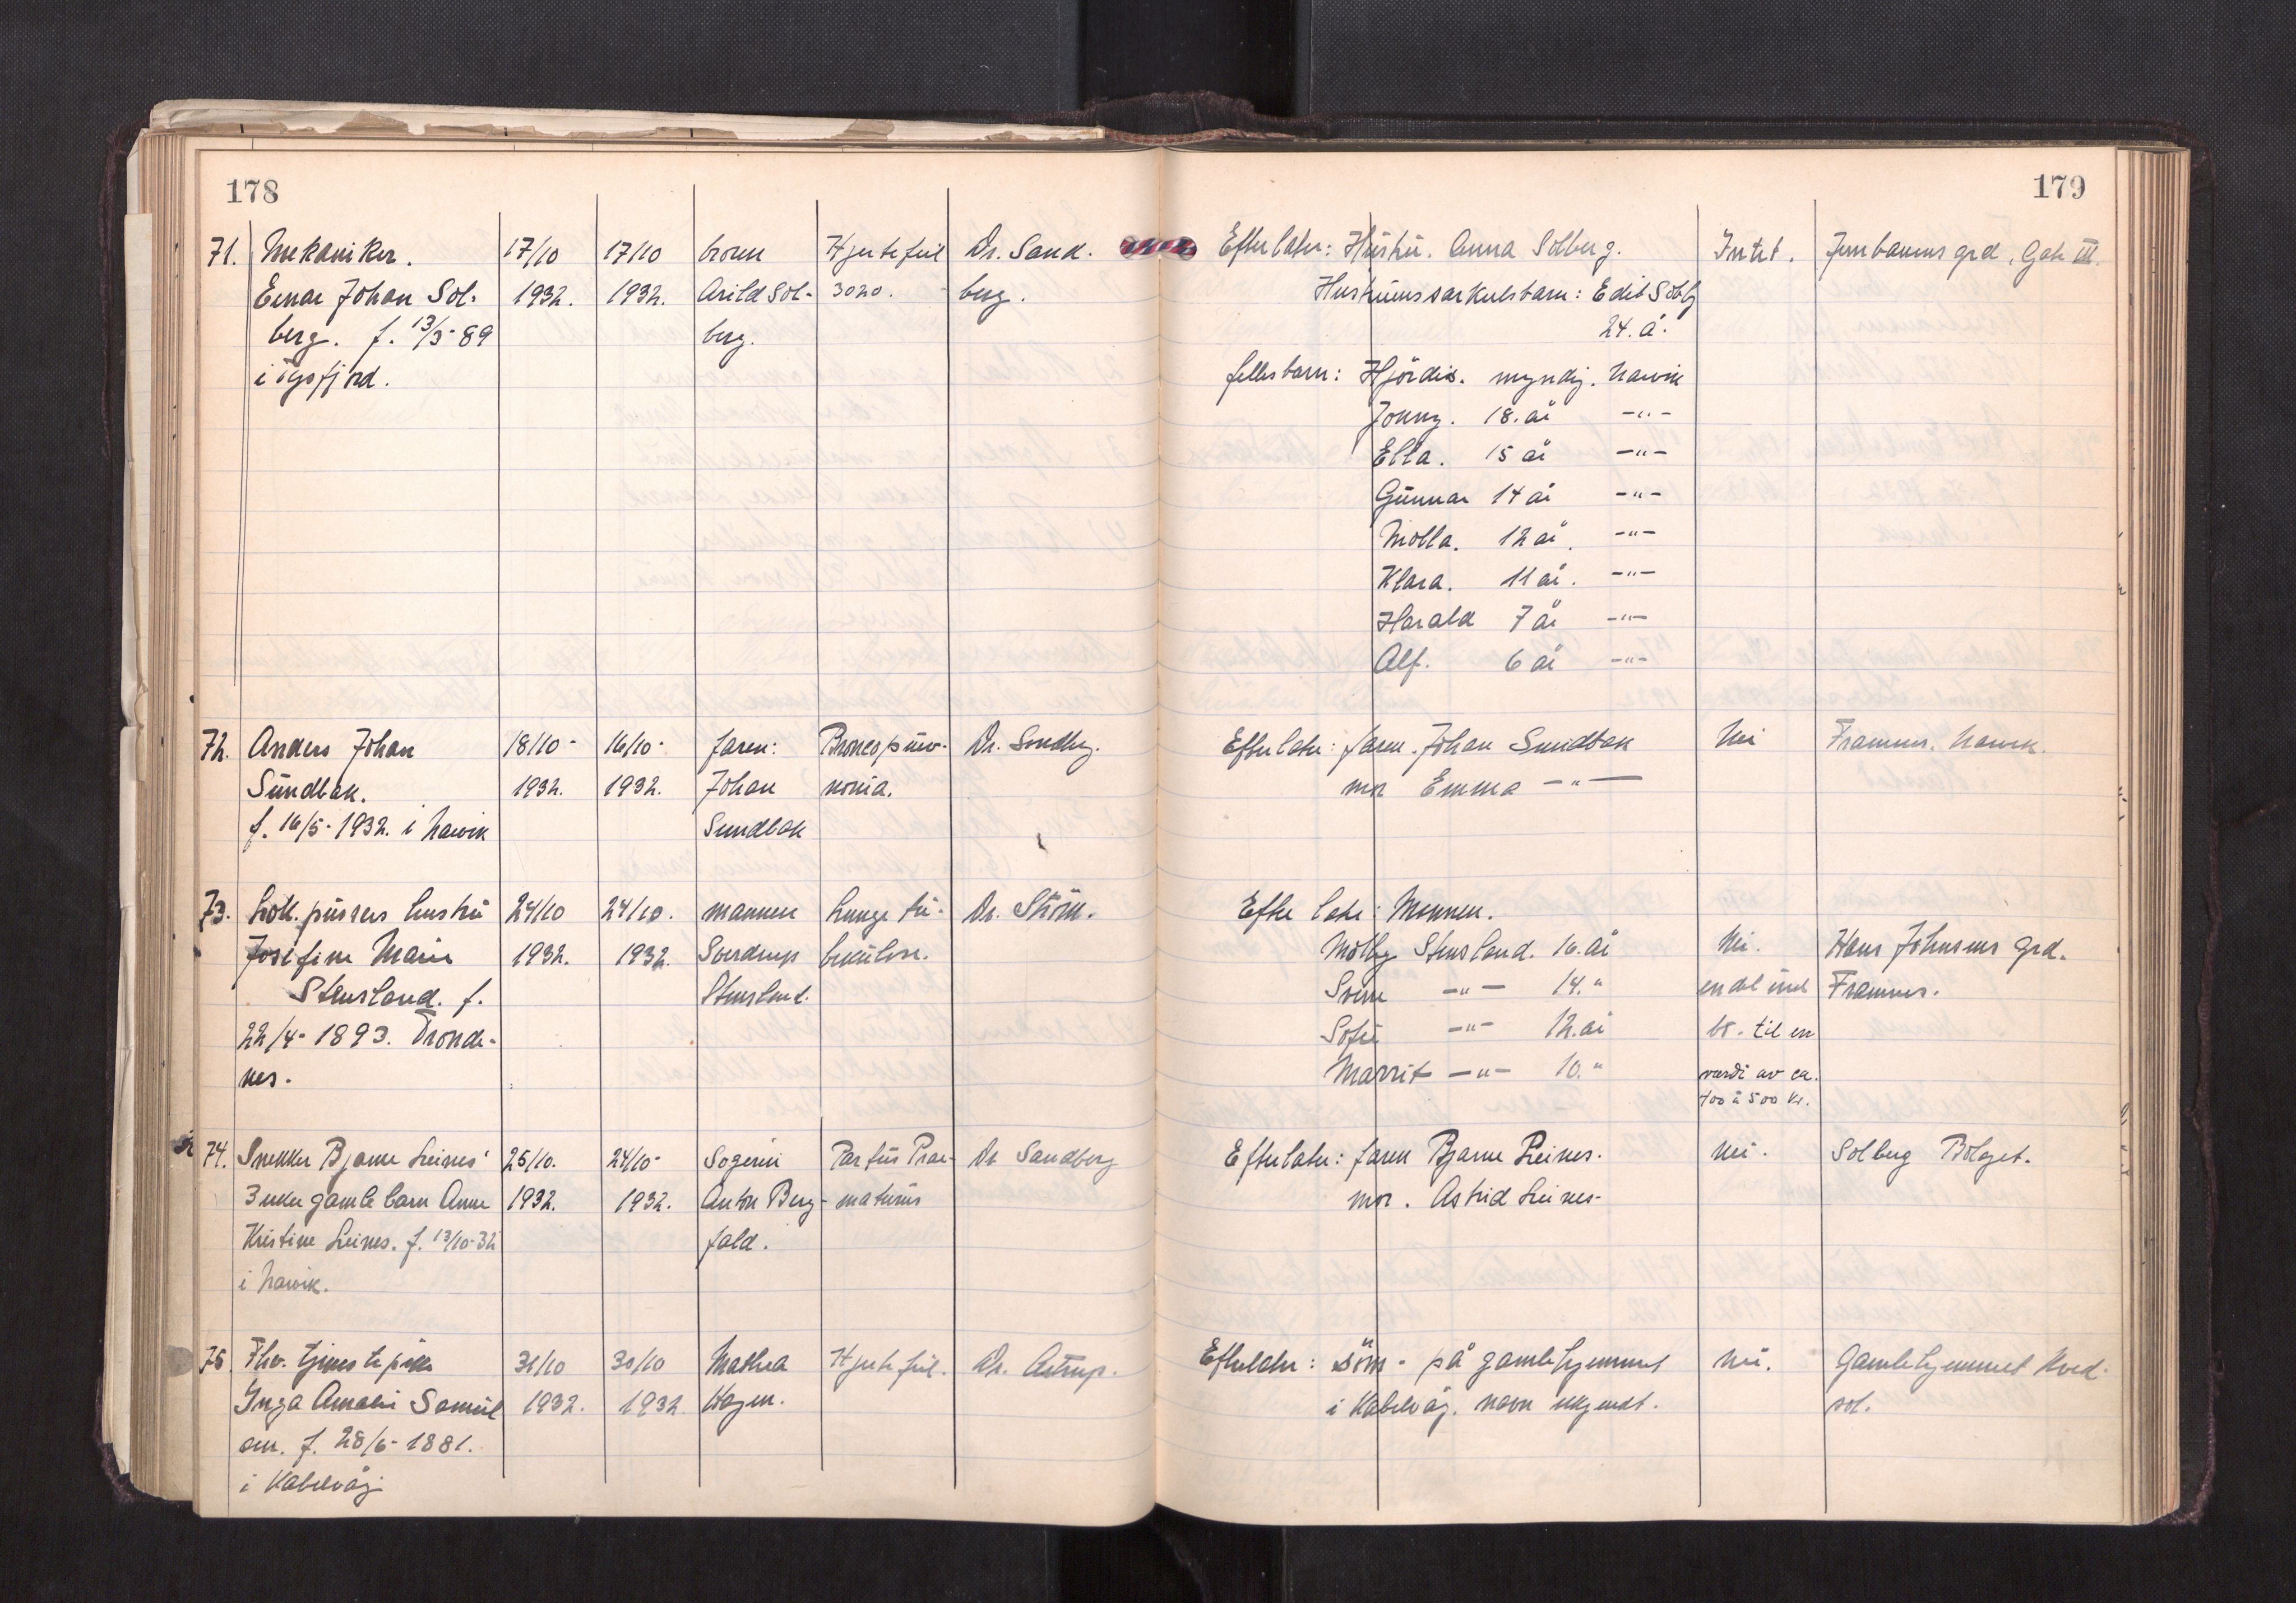 178
71. Mekaniker. 17/10 17/10 broren Hjertefeil Dr. Sand-
Einar Johan Sol- 1932. 1932. Arild Sol- 3020. berg.
berg. f. 13/3-89 berg.
i Tysfjord.
72. Anders Johan 18/10- 16/10- faren: Broncopnev- Dr. Sandbg.
Sundbak. 1932. 1932. Johan monia.
f. 16/5-1932. i Narvik Sundbak
73. Lok. pussers hustru 24/10 24/10. mannen Lunge tu- Dr. Ström.
Josifine Marie 1932. 1932. Sverdrup berkulose.
Stensland. f. Stensland.
22/4-1893. Tronde-
nes.
74. Snekker Bjarne Leines' 25/10. 24/10- Sogerin Partus Prae- Dr Sandberg
3 uker gamle barn Anne 1932. 1932. Anton Berg- maturus
Kristine Leines. f. 13/10-32 fald.
i Narvik.
75. Fhv. tjenestepike 31/10 30/10 Mathea Hjertefeil. Dr. Astrup.
Inga Amalie Samuel 1932. 1932. Hagen.
sen. f. 28/6-1881.
i Kabelvåg
179
Efterlater: Hustru. Anna Solberg. Intet. Jernbanens grd, Gate III.
Hustruens særkulsbarn: Edit Solbg
24. å.
fellesbarn: Hjördis. myndig. Narvik
Jonny. 18. år -"-
Ella. 15 år -"-
Gunnar 14 år -"-
Molla. 12 år. -"-
Klara. 11 år. -"-
Harald 7 år -"-
Alf. 6 år -"-
Efterlater: faren. Johan Sundbak Nei Framnes. Narvik.
mor Emma -"-
Efterlater: Mannen.
Molly Stensland. 16. år Nei. Hans Johnsens grd.
Sverre -"- 14. " en del inn Framnes.
Sofie -"- 12. år bo. til en
Marrit -"- 10. " værdi av ca.
400 à 500 kr.
Efterlater: faren Bjarne Leines. nei. Solberg
mor. Astrid Leines-
Efterlater: søsk- på gamlehjemmet nei. Gamlehjemmet
i Kabelvåg. navn ukjendt.